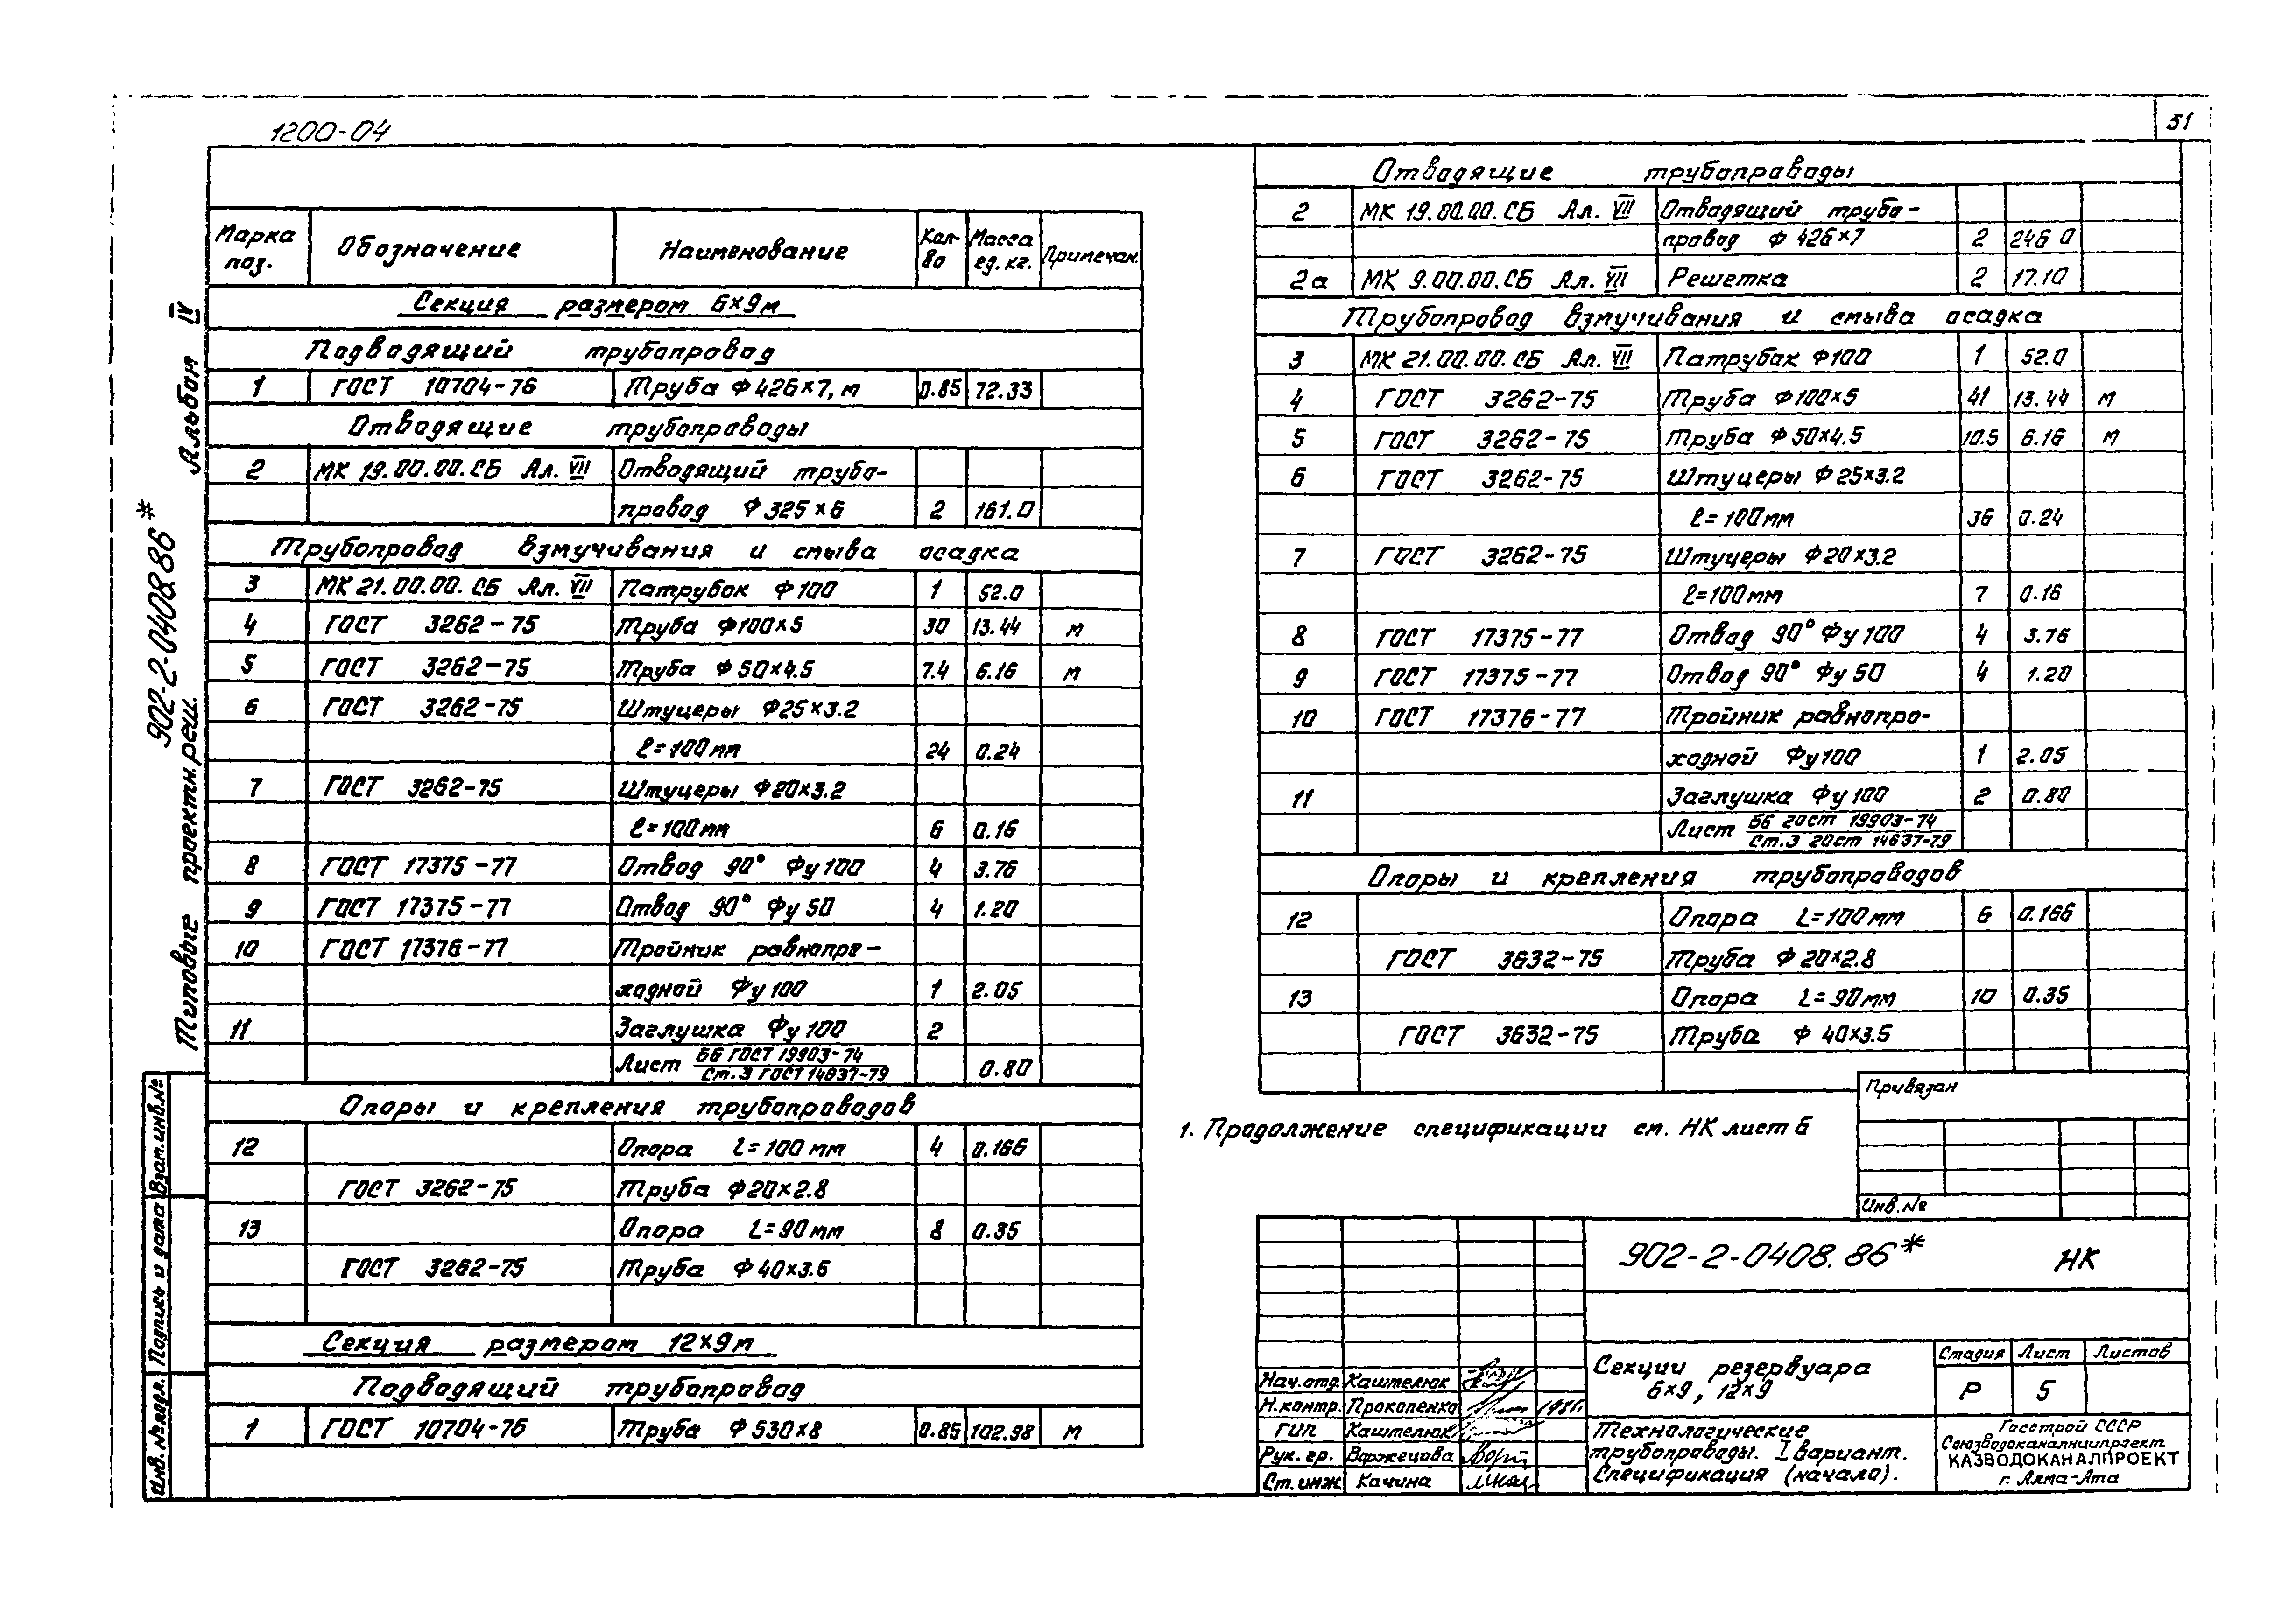 1200-04
51
Альбом IV
902-2-0408.86*
Типовые проектн.реш.
Взам.инв.№
Подпись и дата
Инв.№подл.
Марка поз. Обозначение Наименование Кол-во Масса ед.кг. Примечан.
Секция размером 6×9м
Подводящий трубопровод
1 ГОСТ 10704-76 Труба Ф426×7, м 0.85 72.33
Отводящие трубопроводы
2 МК 19.00.00.СБ Ал. VII Отводящий трубо-
провод Ф325×6 2 161.0
Трубопровод взмучивания и смыва осадка
3 МК 21.00.00.СБ Ал. VII Патрубок Ф100 1 52.0
4 ГОСТ 3262-75 Труба Ф100×5 30 13.44 м
5 ГОСТ 3262-75 Труба Ф50×4.5 7.4 6.16 м
6 ГОСТ 3262-75 Штуцеры Ф25×3.2
ℓ=100мм 24 0.24
7 ГОСТ 3262-75 Штуцеры Ф20×3.2
ℓ=100мм 6 0.16
8 ГОСТ 17375-77 Отвод 90° Фу100 4 3.76
9 ГОСТ 17375-77 Отвод 90° Фу50 4 1.20
10 ГОСТ 17376-77 Тройник равнопро-
ходной Фу100 1 2.05
11 Заглушка Фу100 2
Лист Б6 ГОСТ 19903-74
Ст.3 ГОСТ 14637-79 0.80
Опоры и крепления трубопроводов
12 Опора ℓ=100мм 4 0.166
ГОСТ 3262-75 Труба Ф20×2.8
13 Опора L=90мм 8 0.35
ГОСТ 3262-75 Труба Ф40×3.5
Секция размером 12×9м
Подводящий трубопровод
1 ГОСТ 10704-76 Труба Ф530×8 0.85 102.98 м
Отводящие трубопроводы
2 МК 19.00.00.СБ Ал. VII Отводящий трубо-
провод Ф426×7 2 246.0
2а МК 9.00.00.СБ Ал. VII Решетка 2 17.10
Трубопровод взмучивания и смыва осадка
3 МК 21.00.00.СБ Ал. VII Патрубок Ф100 1 52.0
4 ГОСТ 3262-75 Труба Ф100×5 41 13.44 м
5 ГОСТ 3262-75 Труба Ф50×4.5 10.5 6.16 м
6 ГОСТ 3262-75 Штуцеры Ф25×3.2
ℓ=100мм 36 0.24
7 ГОСТ 3262-75 Штуцеры Ф20×3.2
ℓ=100мм 7 0.16
8 ГОСТ 17375-77 Отвод 90° Фу100 4 3.76
9 ГОСТ 17375-77 Отвод 90° Фу50 4 1.20
10 ГОСТ 17376-77 Тройник равнопро-
ходной Фу100 1 2.05
11 Заглушка Фу100 2 0.80
Лист Б6 гост 19903-74
Ст.3 гост 14637-79
Опоры и крепления трубопроводов
12 Опора L=100мм 6 0.166
ГОСТ 3632-75 Труба Ф20×2.8
13 Опора L=90мм 10 0.35
ГОСТ 3632-75 Труба Ф 40×3.5
1. Продолжение спецификации см. НК лист 6
Привязан
Инв.№
902-2-0408.86* НК
Секции резервуара
6×9, 12×9
Стадия Лист Листов
Р 5
Технологические
трубопроводы. I вариант.
Спецификация (начало).
Госстрой СССР
Союзводоканалниипроект
КАЗВОДОКАНАЛПРОЕКТ
г. Алма-Ата
Нач.отд. Каштелюк
Н.контр. Прокопенко
ГИП Каштелюк
Рук. гр. Воржецова
Ст.инж. Качина